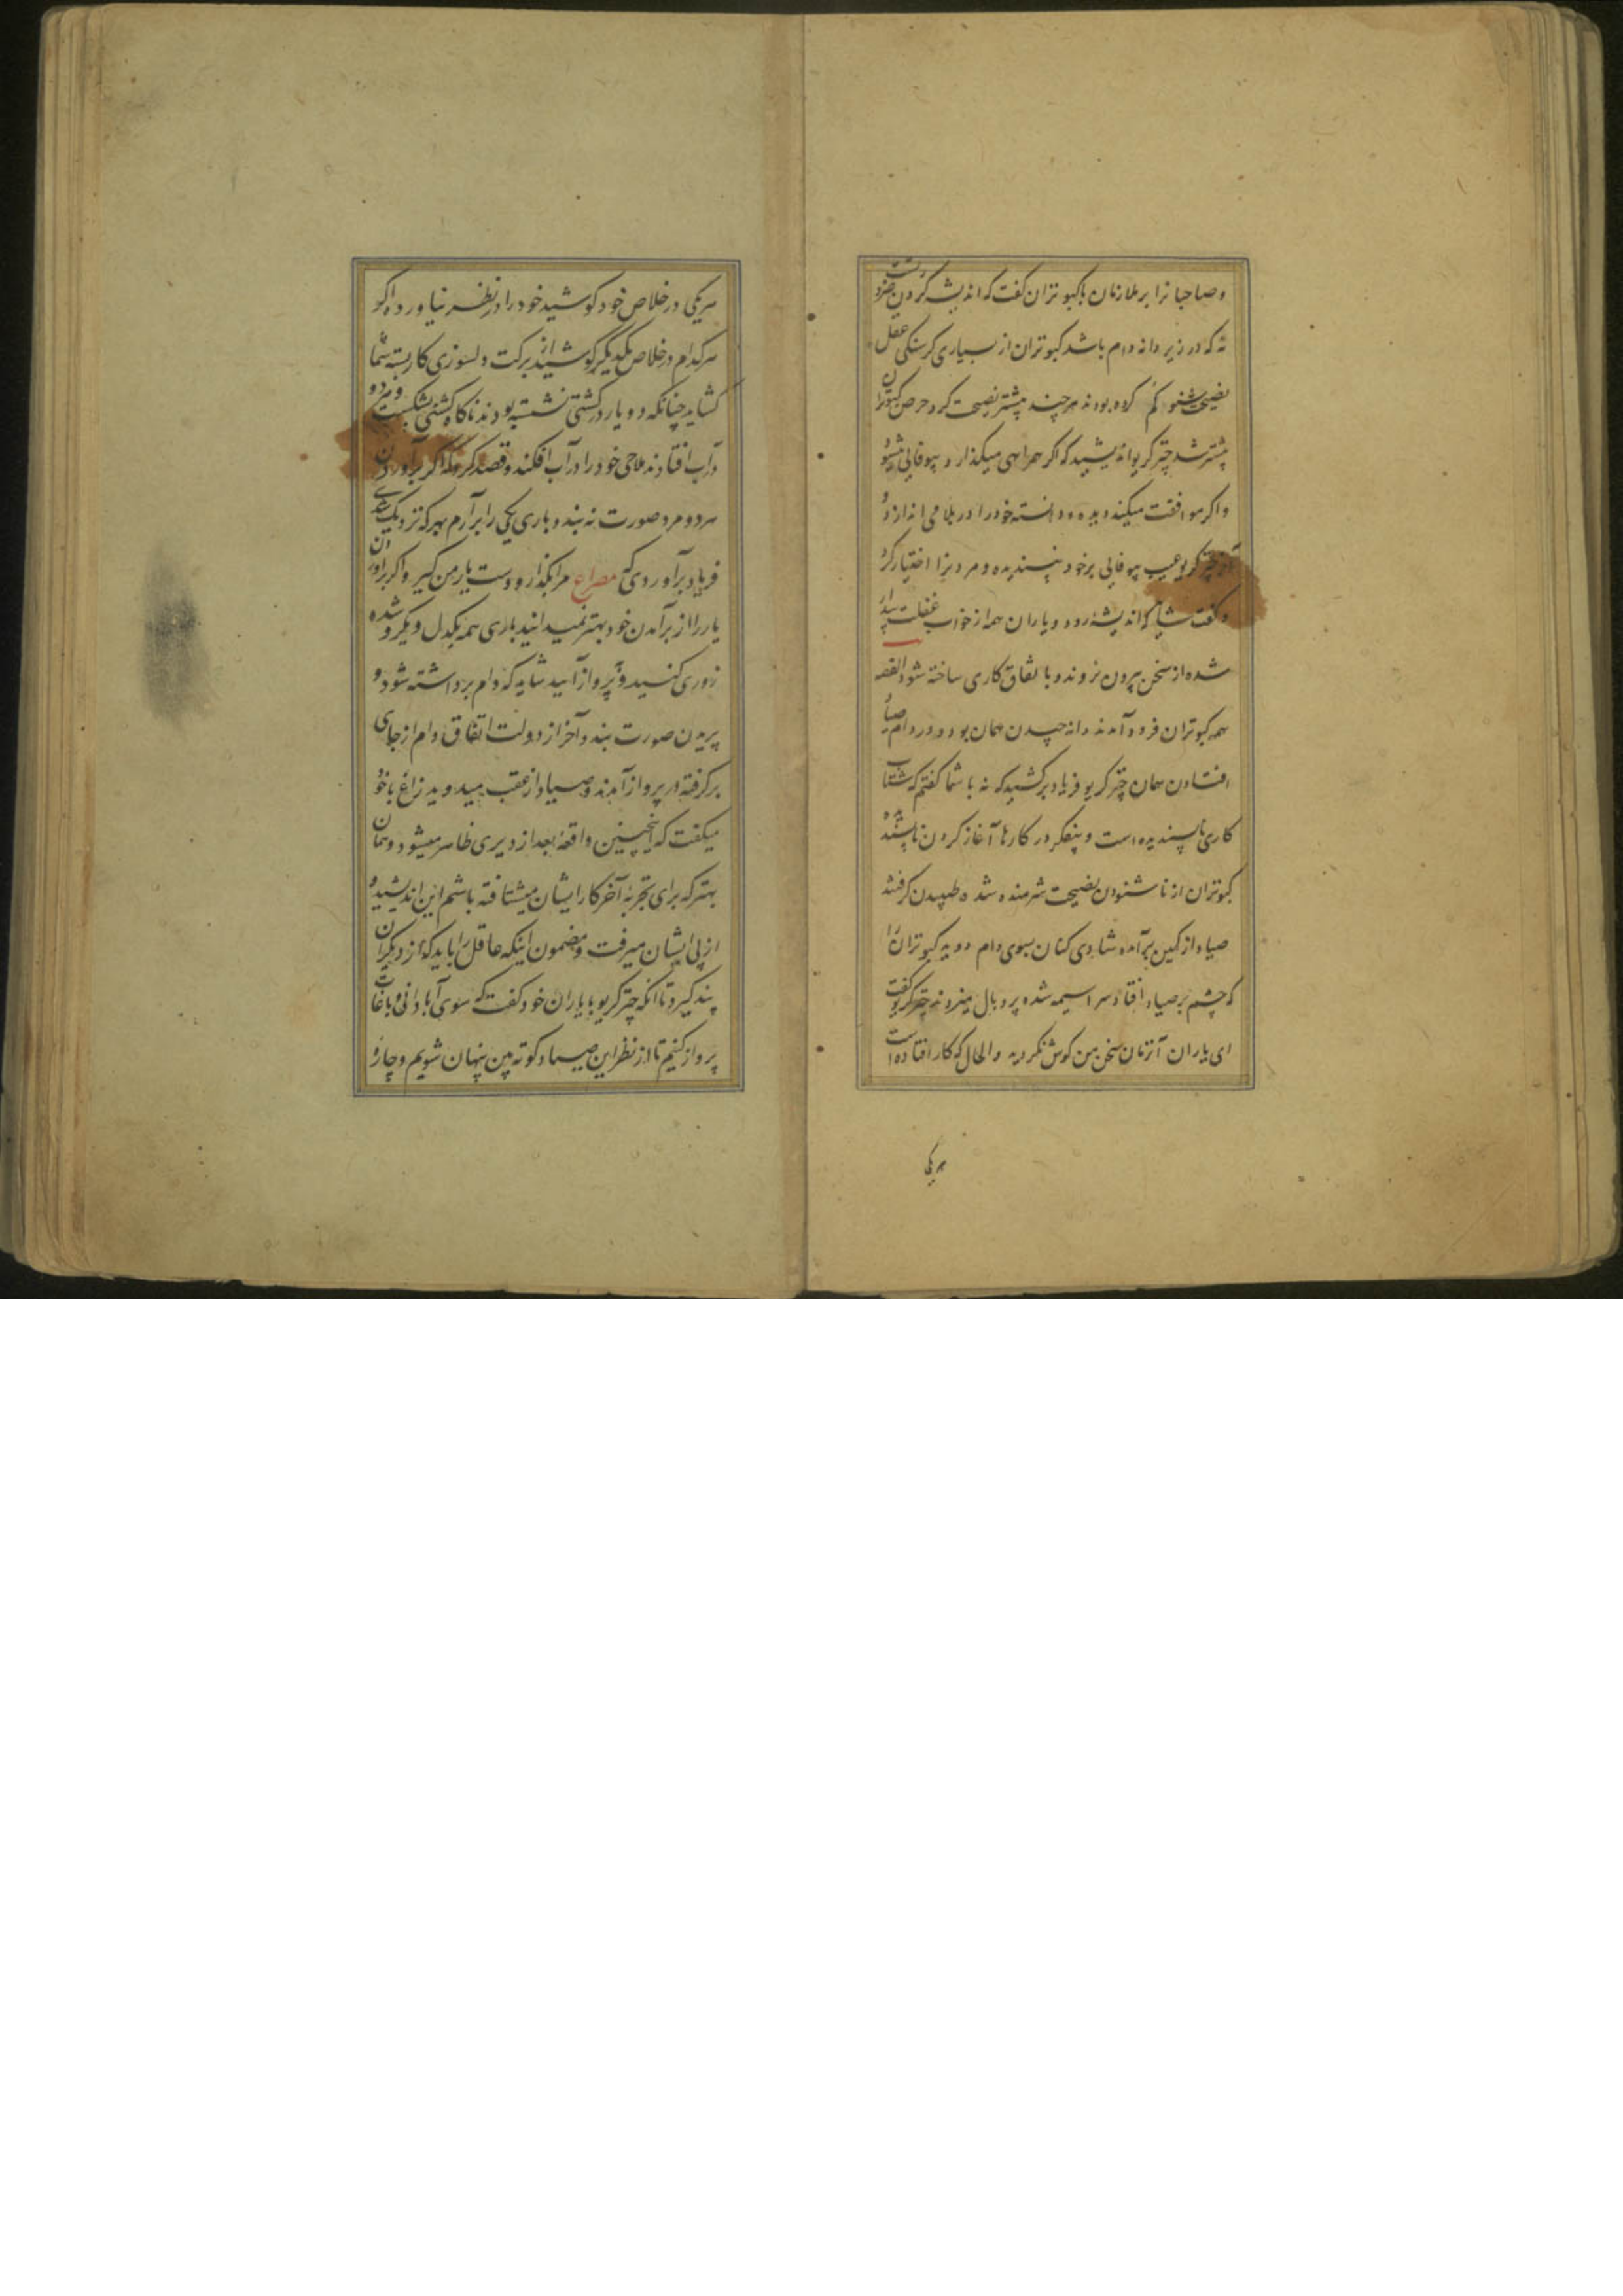 و صاحبانرا بر ملازمان با کبوتران گفت که اندیشه کردن ضرورتست
نه که در زیر دانه دام باشد کبوتران از بسیاری گرسنگی عقل
نصیحت شنو گم کرده بودند هر چند بیشتر نصیحت کرد حرص کبوتران
بیشتر شد چترگریو اندیشید که اگر همراهی میگذارد بیوفائی میشود
و اگر موافقت میکند دیده و دانسته خود را در بلا می اندازد و
آخر چترگریو عیب بیوفائی بر خود نپسندیده و مردنرا اختیار کرد
و گفت شاید که اندیشه رود و یاران همه از خواب غفلت بیدار
شده از سخن بیرون نروند و با تفاق کاری ساخته شود القصه
همه کبوتران فرود آمدند دانه چیدن همان بود و در دام صیاد
افتادن همان چترگریو فریاد برکشید که نه با شما گفتم که شتاب
کاری ناپسندیده است و بیفکر در کارها آغاز کردن ناپسندیده
کبوتران از ناشنودن نصیحت شرمنده شده طپیدن گرفتند
صیاد از کمین برآمده شادی کنان بسوی دام دوید کبوتران را
که چشم بر صیاد افتاد سراسیمه شده پر و بال میزدند چترگریو گفت
ای یاران آنزمان سخن من گوش نکردید والحال که کار افتاده است
هریکی
هریکی در خلاص خود کوشید خود را در نظر نیاورده اگر
هرکدام در خلاص یکدیگر کوشید از برکت دلسوزی کار بسته شما
گشاید چنانکه دو یار در کشتی نشسته بودند ناگاه کشتی بشکست و هر دو
در آب افتادند ملاحی خود را در آب افکند و قصد کرد که اگر برآوردن
هر دو مرد صورت نه بندد باری یکی را برآرم بهر که نزدیک شدی
فریاد برآوردی که مصراع مرا بگذار و دست یار من گیر و اگر برآوردن
یار را از برآمدن خود بهتر نمیدانید باری همه یکدل و یکرو شده
زوری کنید و بپرواز آیید شاید که دام برداشته شود و
پریدن صورت بندد آخر از دولت اتفاق دام از جای
برگرفته در پرواز آمدند و صیاد از عقب میدوید زاغ با خود
میگفت که اینچنین واقعه بعد از دیری ظاهر میشود و همان
بهتر که برای تجربه آخر کار ایشان میشتافته باشم این اندیشید و
از پی ایشان میرفت و مضمون اینکه عاقل را باید که از دیگران
پند گیرد تا آنکه چترگریو با یاران خود گفت که سوی آبادانی و باغات
پرواز کنیم تا از نظر این صیاد کوته بین پنهان شویم و چاره